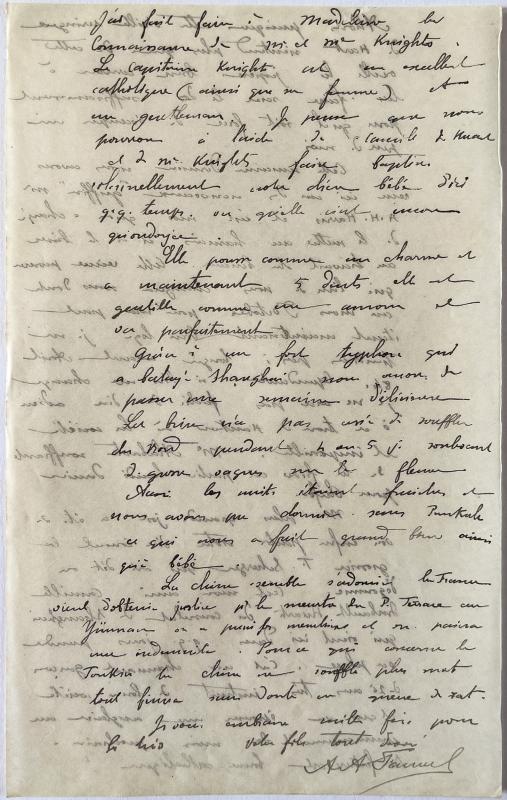 J'ai fait faire à Madeleine la
connaissance de Mr et Me Knights.
Le capitaine Knights est un excellent
catholique (ainsi que sa femme) et
un gentleman. Je pense que nous
pourrons à l'aide de Camille de
et de Me Knights faire baptiser
solennellement notre chère bébée d'ici
q.q. temps, vu qu'elle n'est encore
qu'ondoyée.
Elle pousse comme un charme et
a maintenant 5 dents elle est
gentille comme un amour et
va parfaitement
Grâce à un fort typhon qui
a balayé Shanghai nous avons de
passer une semaine délicieuse
La brise n'a pas cessé de souffler
du Nord pendant 4 ou 5 j. soulevant
de grosses vagues sur le fleuve
Aussi les nuits étaient fraîches et
nous avons pu dormir sans Punkah
ce qui nous a fait grand bien ainsi
qu'à bébé.
La Chine semble s'adoucir la France
vient d'obtenir justice pr le meurtre du P. Terrasse au
Yünnan on a puni les meurtriers et on paiera
une indemnité. Pour ce qui concerne le
Tonkin la Chine ne souffle plus mot
tout finira sans doute en queue de rat.
Je vous embrasse mille fois pour
le trio votre fils